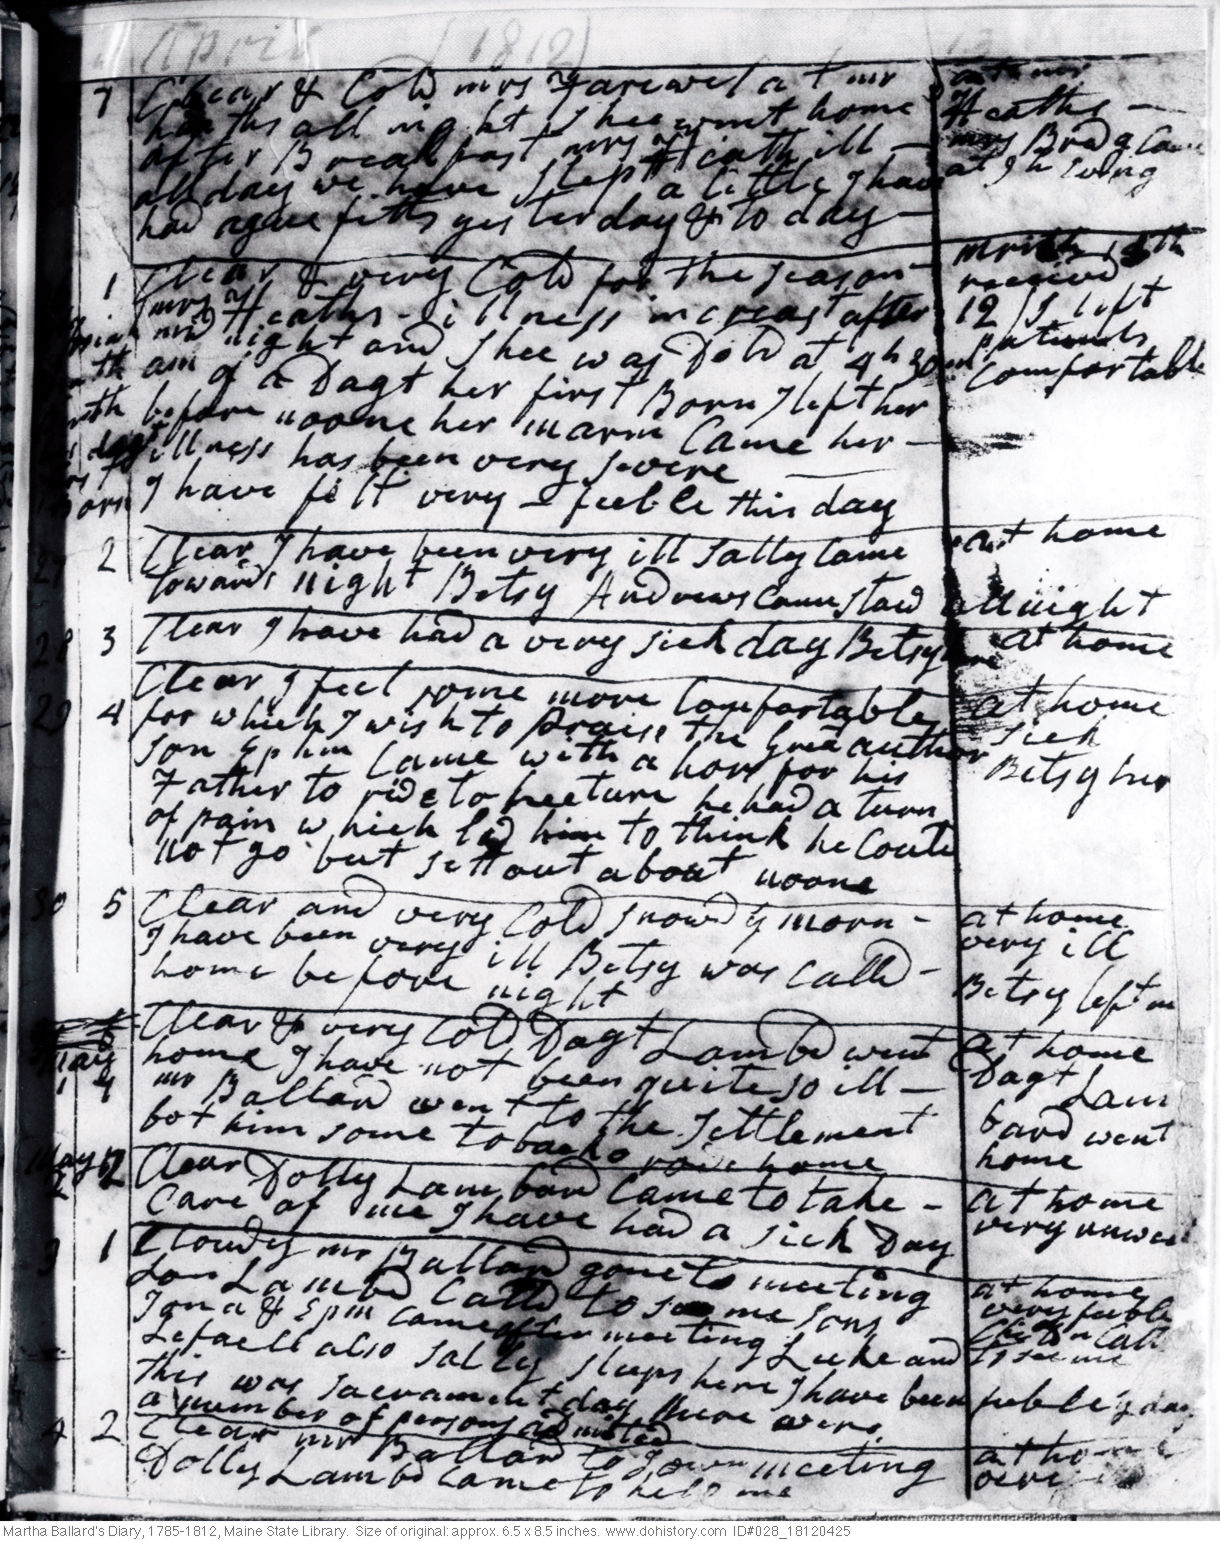 April (1812)
7
Clear & Cold mrs Farewel at mr
heaths all night Shee went home
after Breakfast mrs Heath ill –
all day we have Slept a little I have
had ague fitts yesterday & to day –
at mr
Heaths –
mrs Bradg Came
at
1
Clear & very Cold for the season –
mrs Heaths illness increast after
mid night and Shee was Dld at 4 h 30 m
am of a Dagt her first Born I left her
before noone her marm Came her –
illness has been very severe
I have felt very feeble this day
Birth
received
12 /S left
patients
Comfortable
27 2
Clear I have been very ill Sally Came
towards night Betsy Andrews Came Staid all night
at home
28 3
Clear I have had a very sick day Betsy here
at home
29 4
Clear I feel some more Comfortable
for which I wish to praise the great author
son Ephm Came with a hors for his
Father to ride to
he had a turn
of pain which led him to think he Could
not go but sett out about noone
at home
sick
Betsy her
30 5
Clear and very Cold snowd y morn –
I have been very ill Betsy was Calld –
home before night
at home
very ill
Betsy left me
May
1
Clear & very Cold Dagt Lambd went
home I have not been quite so ill –
mr Ballard went to the Settlement
bot him some tobacko rode home
at home
Dagt Lam
bard went
home
May
2
Clear Dolly Lambard Came to take –
Care of me I have had a sick Day
at home
very unwell
3 1
Cloudy mr Ballard gone to meeting
son Lambd Calld to see me sons
Jona & Ephm Came after meeting Luke and
also Sally sleeps here I have been feeble y day
this was Sacrament day there were
a number of persons admitted
at home
very feeble
Calld
to see me
4 2
Clear mr Ballard to Town meeting
Dolly Lambd Came to help me
at home
Martha Ballard's Diary, 1785-1812, Maine State Library. Size of original: approx. 6.5 x 8.5 inches. www.dohistory.com ID#028_18120425